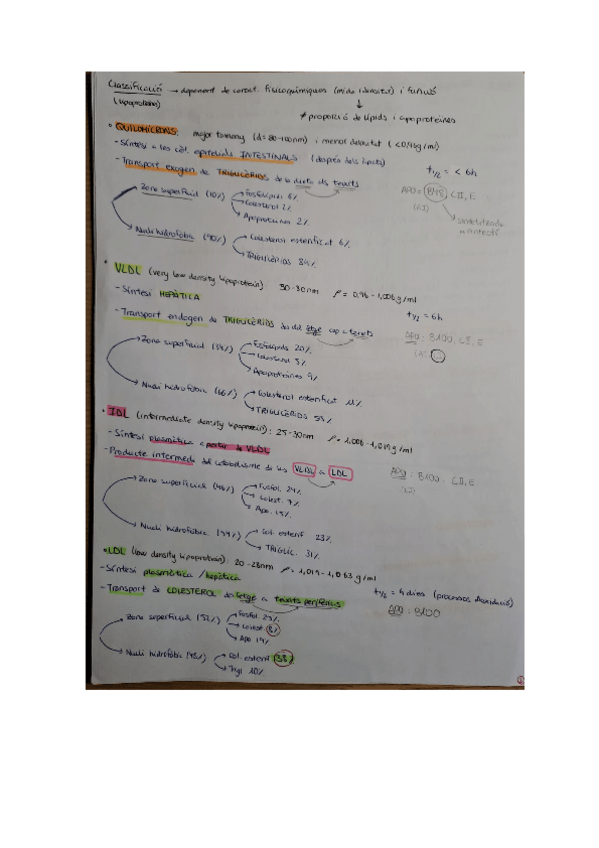 Classificació → depenent de caract. fisicoquímiques (mida i densitat) i funció
(lipoproteïnes)
≠ proporció de lípids i apoproteïnes
• QUILOMICRONS: major tamany (d= 80-100nm) i menor densitat (<0,95g/ml)
- Síntesi a les cèl. epitelials INTESTINALS (després dels àpats)
t1/2 = < 6h
- Transport exogen de TRIGLICÈRIDS de la dieta als teixits
APO: B48, CII, E
sintetitzada
Zona superficial (10%)
Fosfolípids 6%
Colesterol 2%
Apoproteïnes 2%
Nucli hidrofòbic (90%)
Colesterol esterificat 6%
TRIGLICÈRIDS 84%
• VLDL (very low density lipoprotein) 30-80nm ρ = 0,96-1,006g/ml
- Síntesi HEPÀTICA
t1/2 = 6h
- Transport endogen de TRIGLICÈRIDS des del fetge cap a teixits
APO: B100, CII, E
Zona superficial (34%)
Fosfolípids 20%
Colesterol 5%
Apoproteïnes 9%
Nucli hidrofòbic (66%)
Colesterol esterificat 11%
TRIGLICÈRIDS 55%
• IDL (intermediate density lipoprotein): 25-30nm ρ = 1,006-1,019g/ml
- Síntesi plasmàtica a partir de VLDL
- Producte intermedi del catabolisme de les VLDL a LDL
APO: B100, CII, E
Zona superficial (46%)
Fosfol. 24%
Colest. 7%
Apo. 15%
Nucli hidrofòbic (54%)
Col. esterif 23%
TRIGLIC. 31%
• LDL (low density lipoprotein): 20-25nm ρ = 1,019-1,063 g/ml
- Síntesi plasmàtica / hepàtica
- Transport de COLESTEROL del fetge a teixits perifèrics
t1/2 = 4 dies (processos d'oxidació)
APO: B100
Zona superficial (52%)
Fosfol. 25%
Colest. 8%
Apo 19%
Nucli hidrofòbic (48%)
Col. esterif 38%
Trigl 10%